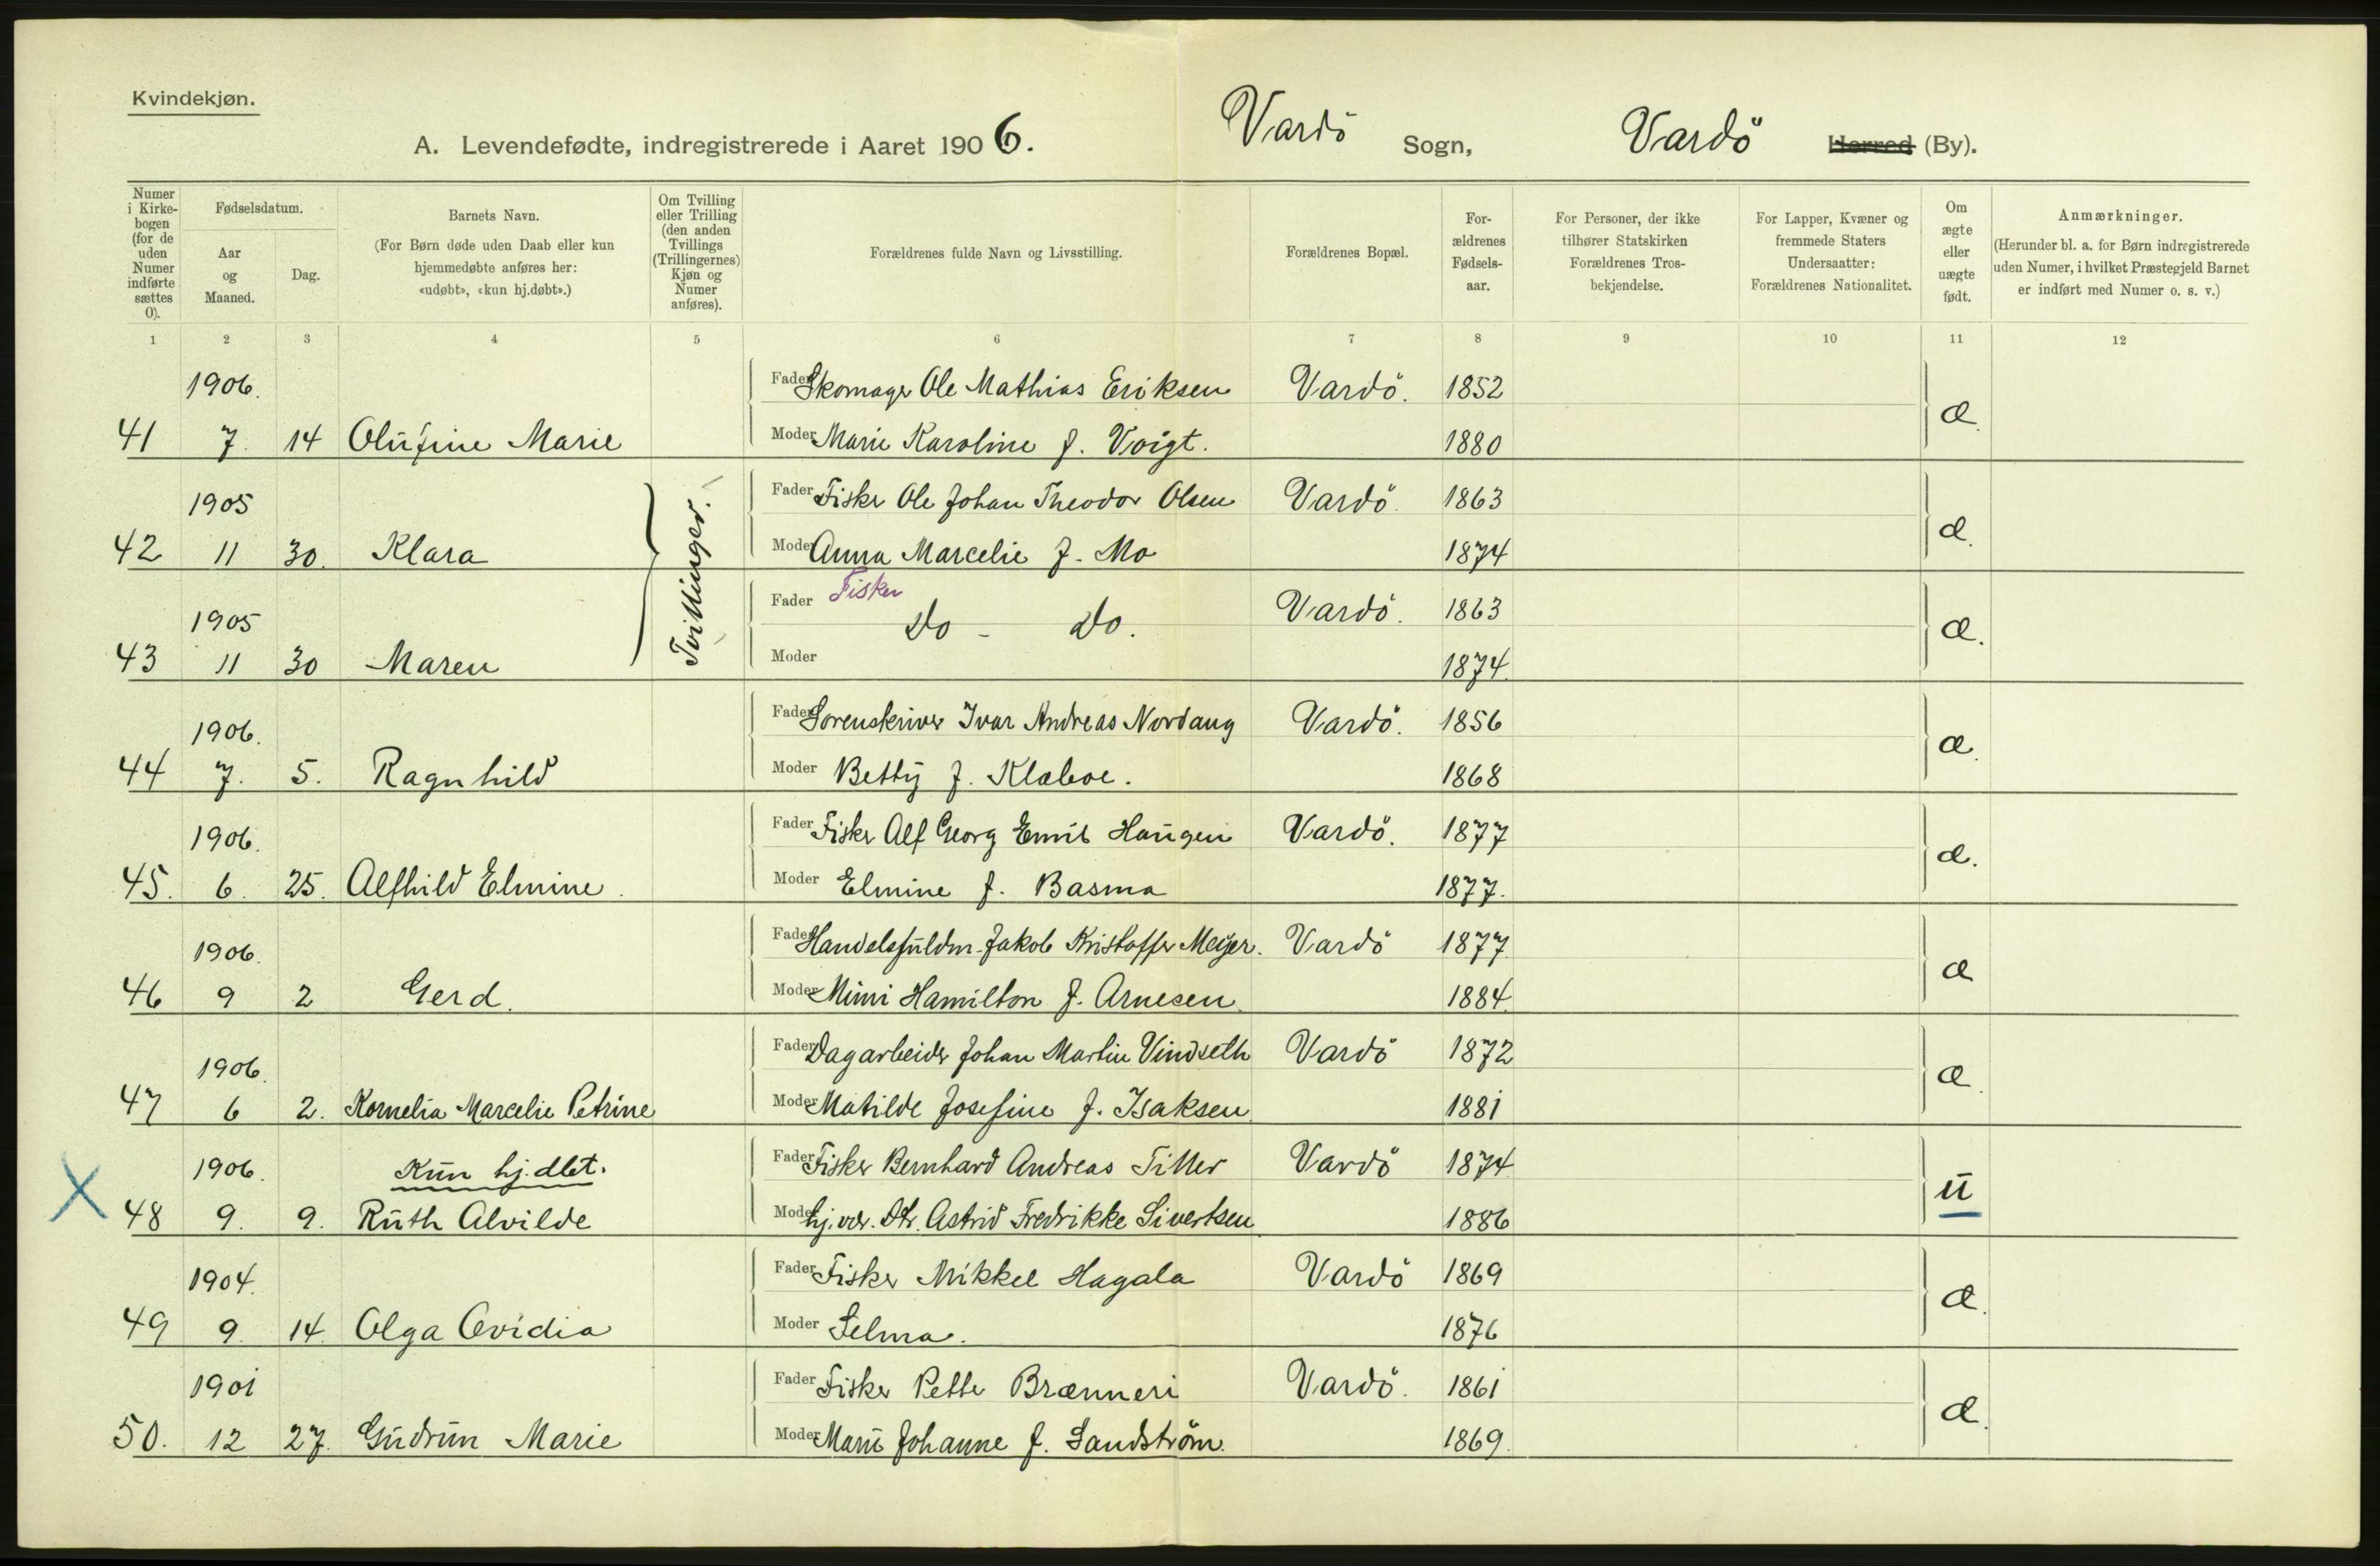 Kvindekjøn.
A. Levendefødte, indregistrerede i Aaret 1906. Vardö Sogn, Vardö Herred (By).
Numer i Kirkebogen (for de uden Numer indførte sættes 0).
Fødselsdatum.
Aar og Maaned.
Dag.
Barnets Navn.
(For Børn døde uden Daab eller kun hjemmedøbte anføres her: «udøbt», «kun hj.døbt».)
Om Tvilling eller Trilling (den anden Tvillings (Trillingernes) Kjøn og Numer anføres).
Forældrenes fulde Navn og Livsstilling.
Forældrenes Bopæl.
Forældrenes Fødselsaar.
For Personer, der ikke tilhører Statskirken Forældrenes Trosbekjendelse.
For Lapper, Kvæner og fremmede Staters Undersaatter: Forældrenes Nationalitet.
Om ægte eller uægte født.
Anmærkninger.
(Herunder bl. a. for Børn indregistrerede uden Numer, i hvilket Præstegjeld Barnet er indført med Numer o. s. v.)
1 2 3 4 5 6 7 8 9 10 11 12
1906. Fader Skomager Ole Mathias Eriksen Vardö. 1852 æ.
41 7. 14 Olüfine Marie Moder Marie Karoline f. Voigt. 1880
1905 Tvillinger. Fader Fisker Ole Johan Theodor Olsen Vardö. 1863 æ.
42 11 30. Klara Moder Anna Marcelie f. Mo 1874
1905 Fader Fisker Do - Do. Vardö. 1863 æ.
43 11 30 Maren Moder 1874.
1906. Fader Sorenskriver Ivar Andreas Nordang Vardö. 1856 æ.
44 7. 5. Ragnhild Moder Betty f. Klæboe. 1868
1906. Fader Fisker Alf Georg Emil Haugen Vardö. 1877 æ.
45. 6. 25. Alfhild Elmine. Moder Elmine f. Basma 1877.
1906. Fader Handelsfüldm. Jakob Kristoffer Meyer. Vardö 1877 æ
46 9 2 Gerd. Moder Mimi Hamilton f. Arnesen. 1884.
1906. Fader Dagarbeider Johan Martin Vindseth Vardö 1872 æ.
47 6 2. Kornelia Marcelie Petrine Moder Matilde Josefine f. Isaksen. 1881
1906. Kün hj.dbt. Fader Fisker Bernhard Andreas Tiller Vardö 1874. ü
X 48 9. 9. Rüth Alvilde Moder hj.vær. Dtr. Astrid Fredrikke Sivertsen. 1886
1904. Fader Fisker Mikkel Hagala Vardö 1869 æ.
49 9. 14. Olga Ovidia Moder Selma. 1876
1901 Fader Fisker Petter Brænneri Vardö. 1861 æ.
50. 12 27. Güdrün Marie Moder Marie Johanne f. Sandström. 1869.